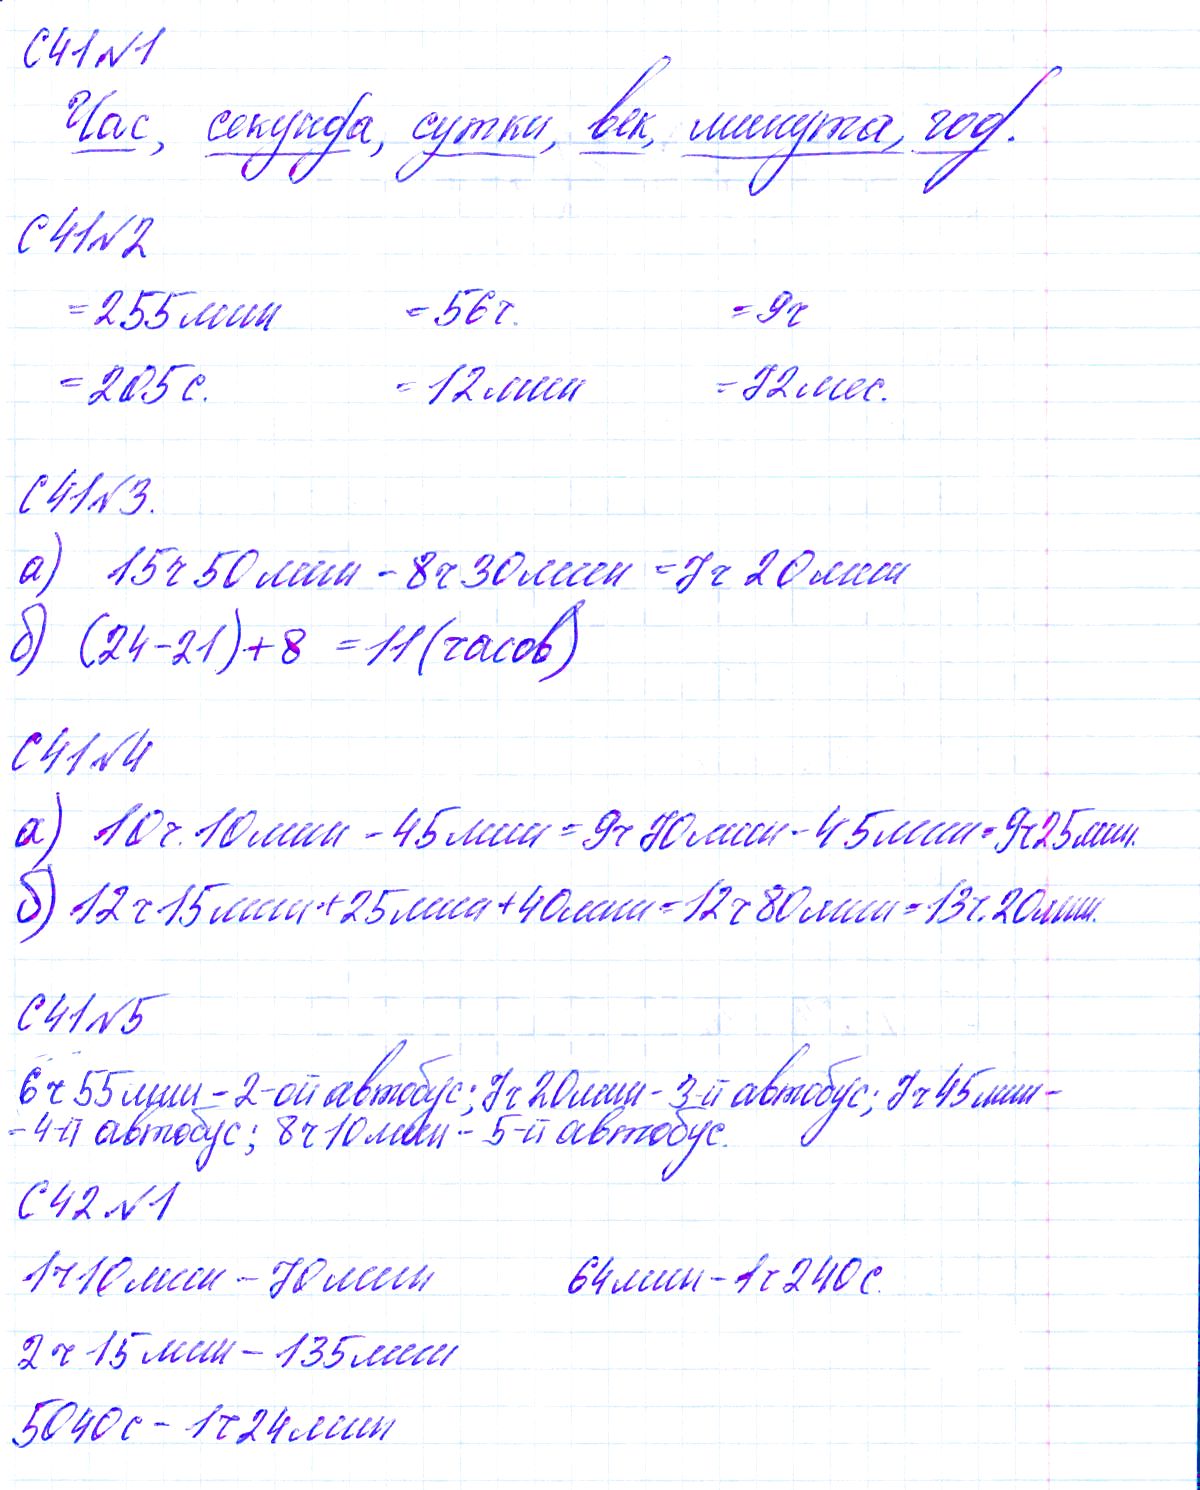 С41 №1
Час, секунда, сутки, век, минута, год.
С41 №2
= 255 мин = 56 ч. = 9 ч
= 205 с. = 12 мин = 72 мес.
С41 №3.
а) 15 ч 50 мин - 8 ч 30 мин = 7 ч 20 мин
б) (24-21)+8 = 11 (часов)
С41 №4
а) 10 ч. 10 мин - 45 мин = 9 ч 70 мин - 45 мин = 9 ч 25 мин.
б) 12 ч 15 мин + 25 мин + 40 мин = 12 ч 80 мин = 13 ч. 20 мин.
С41 №5
6 ч 55 мин - 2-ой автобус; 7 ч 20 мин - 3-й автобус; 7 ч 45 мин -
- 4-й автобус; 8 ч 10 мин - 5-й автобус.
С42 №1
1 ч 10 мин - 70 мин 64 мин - 1 ч 240 с.
2 ч 15 мин - 135 мин
5040 с - 1 ч 24 мин